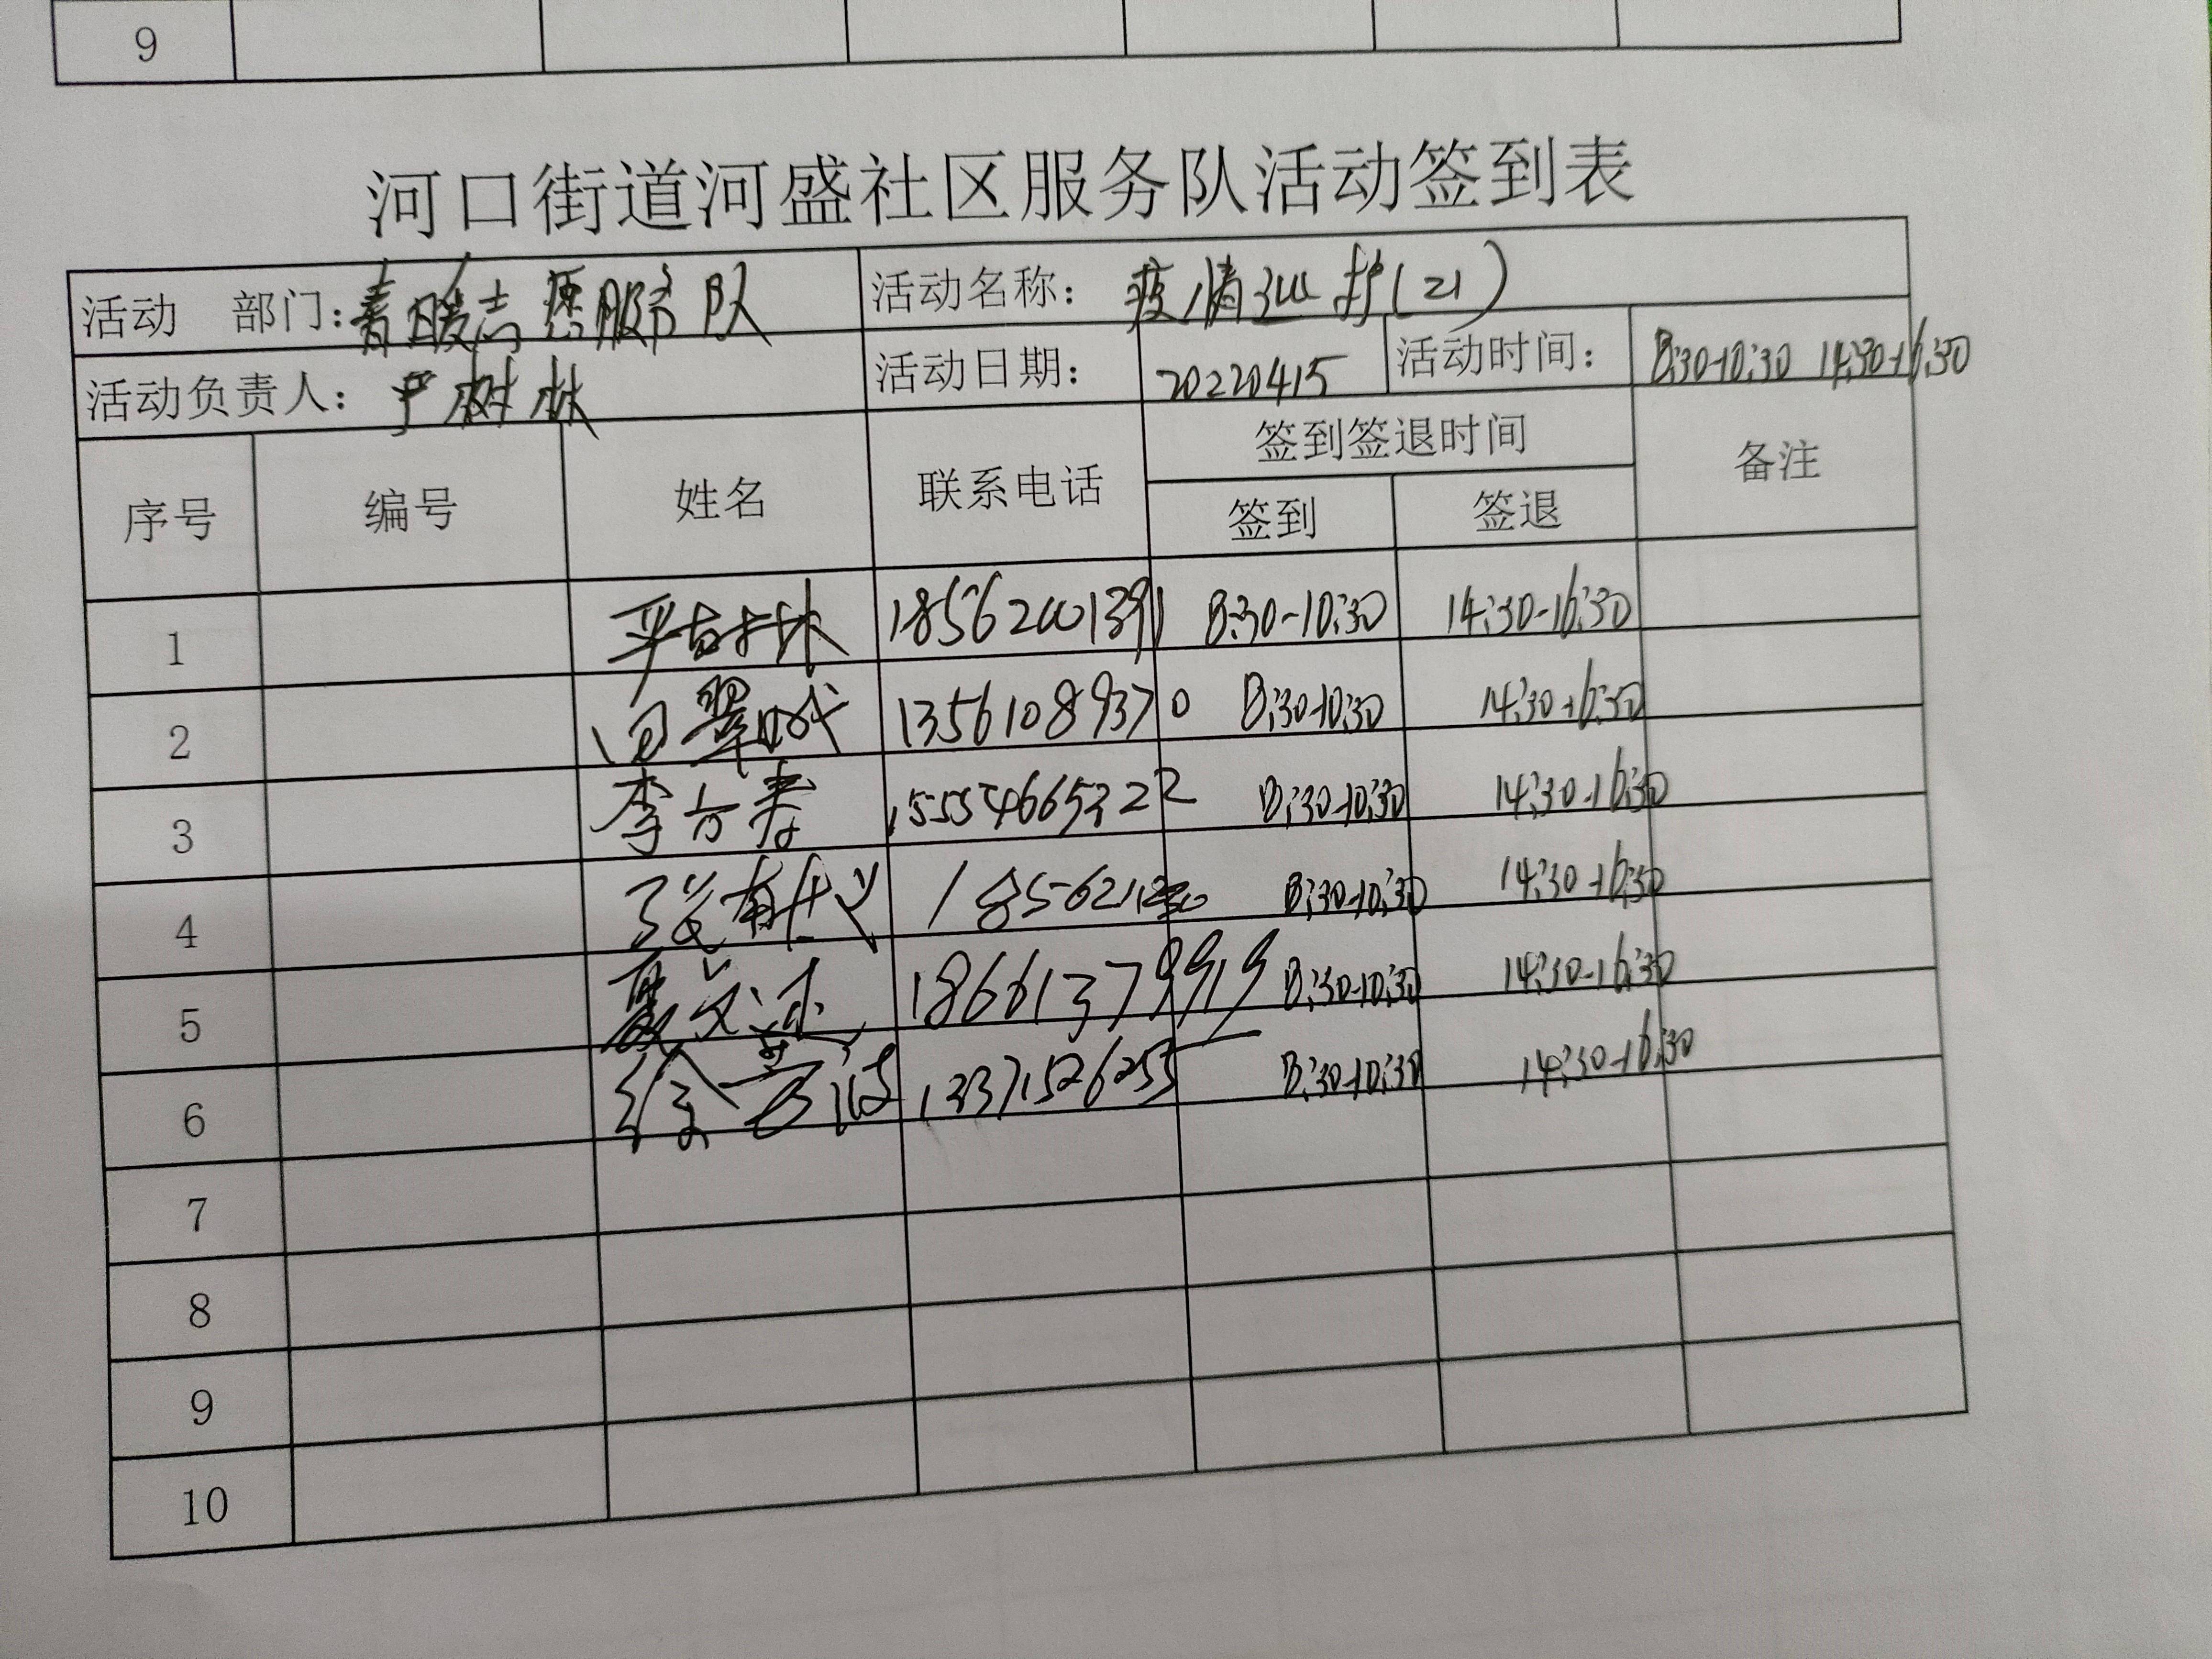 9
河口街道河盛社区服务队活动签到表
活动 部门：春暖志愿服务队 活动名称： 疫情 护(21)
活动负责人： 严树林 活动日期： 20220415 活动时间： 8:30-10:30 14:30-16:30
序号 编号 姓名 联系电话 签到签退时间 备注
签到 签退
1 18562001391 8:30-10:30 14:30-16:30
2 13561089370 8:30-10:30 14:30-16:30
3 李方寿 15554665322 8:30-10:30 14:30-16:30
4 8:30-10:30 14:30-16:30
5 18661379919 8:30-10:30 14:30-16:30
6 13371526255 8:30-10:30 14:30-16:30
7
8
9
10